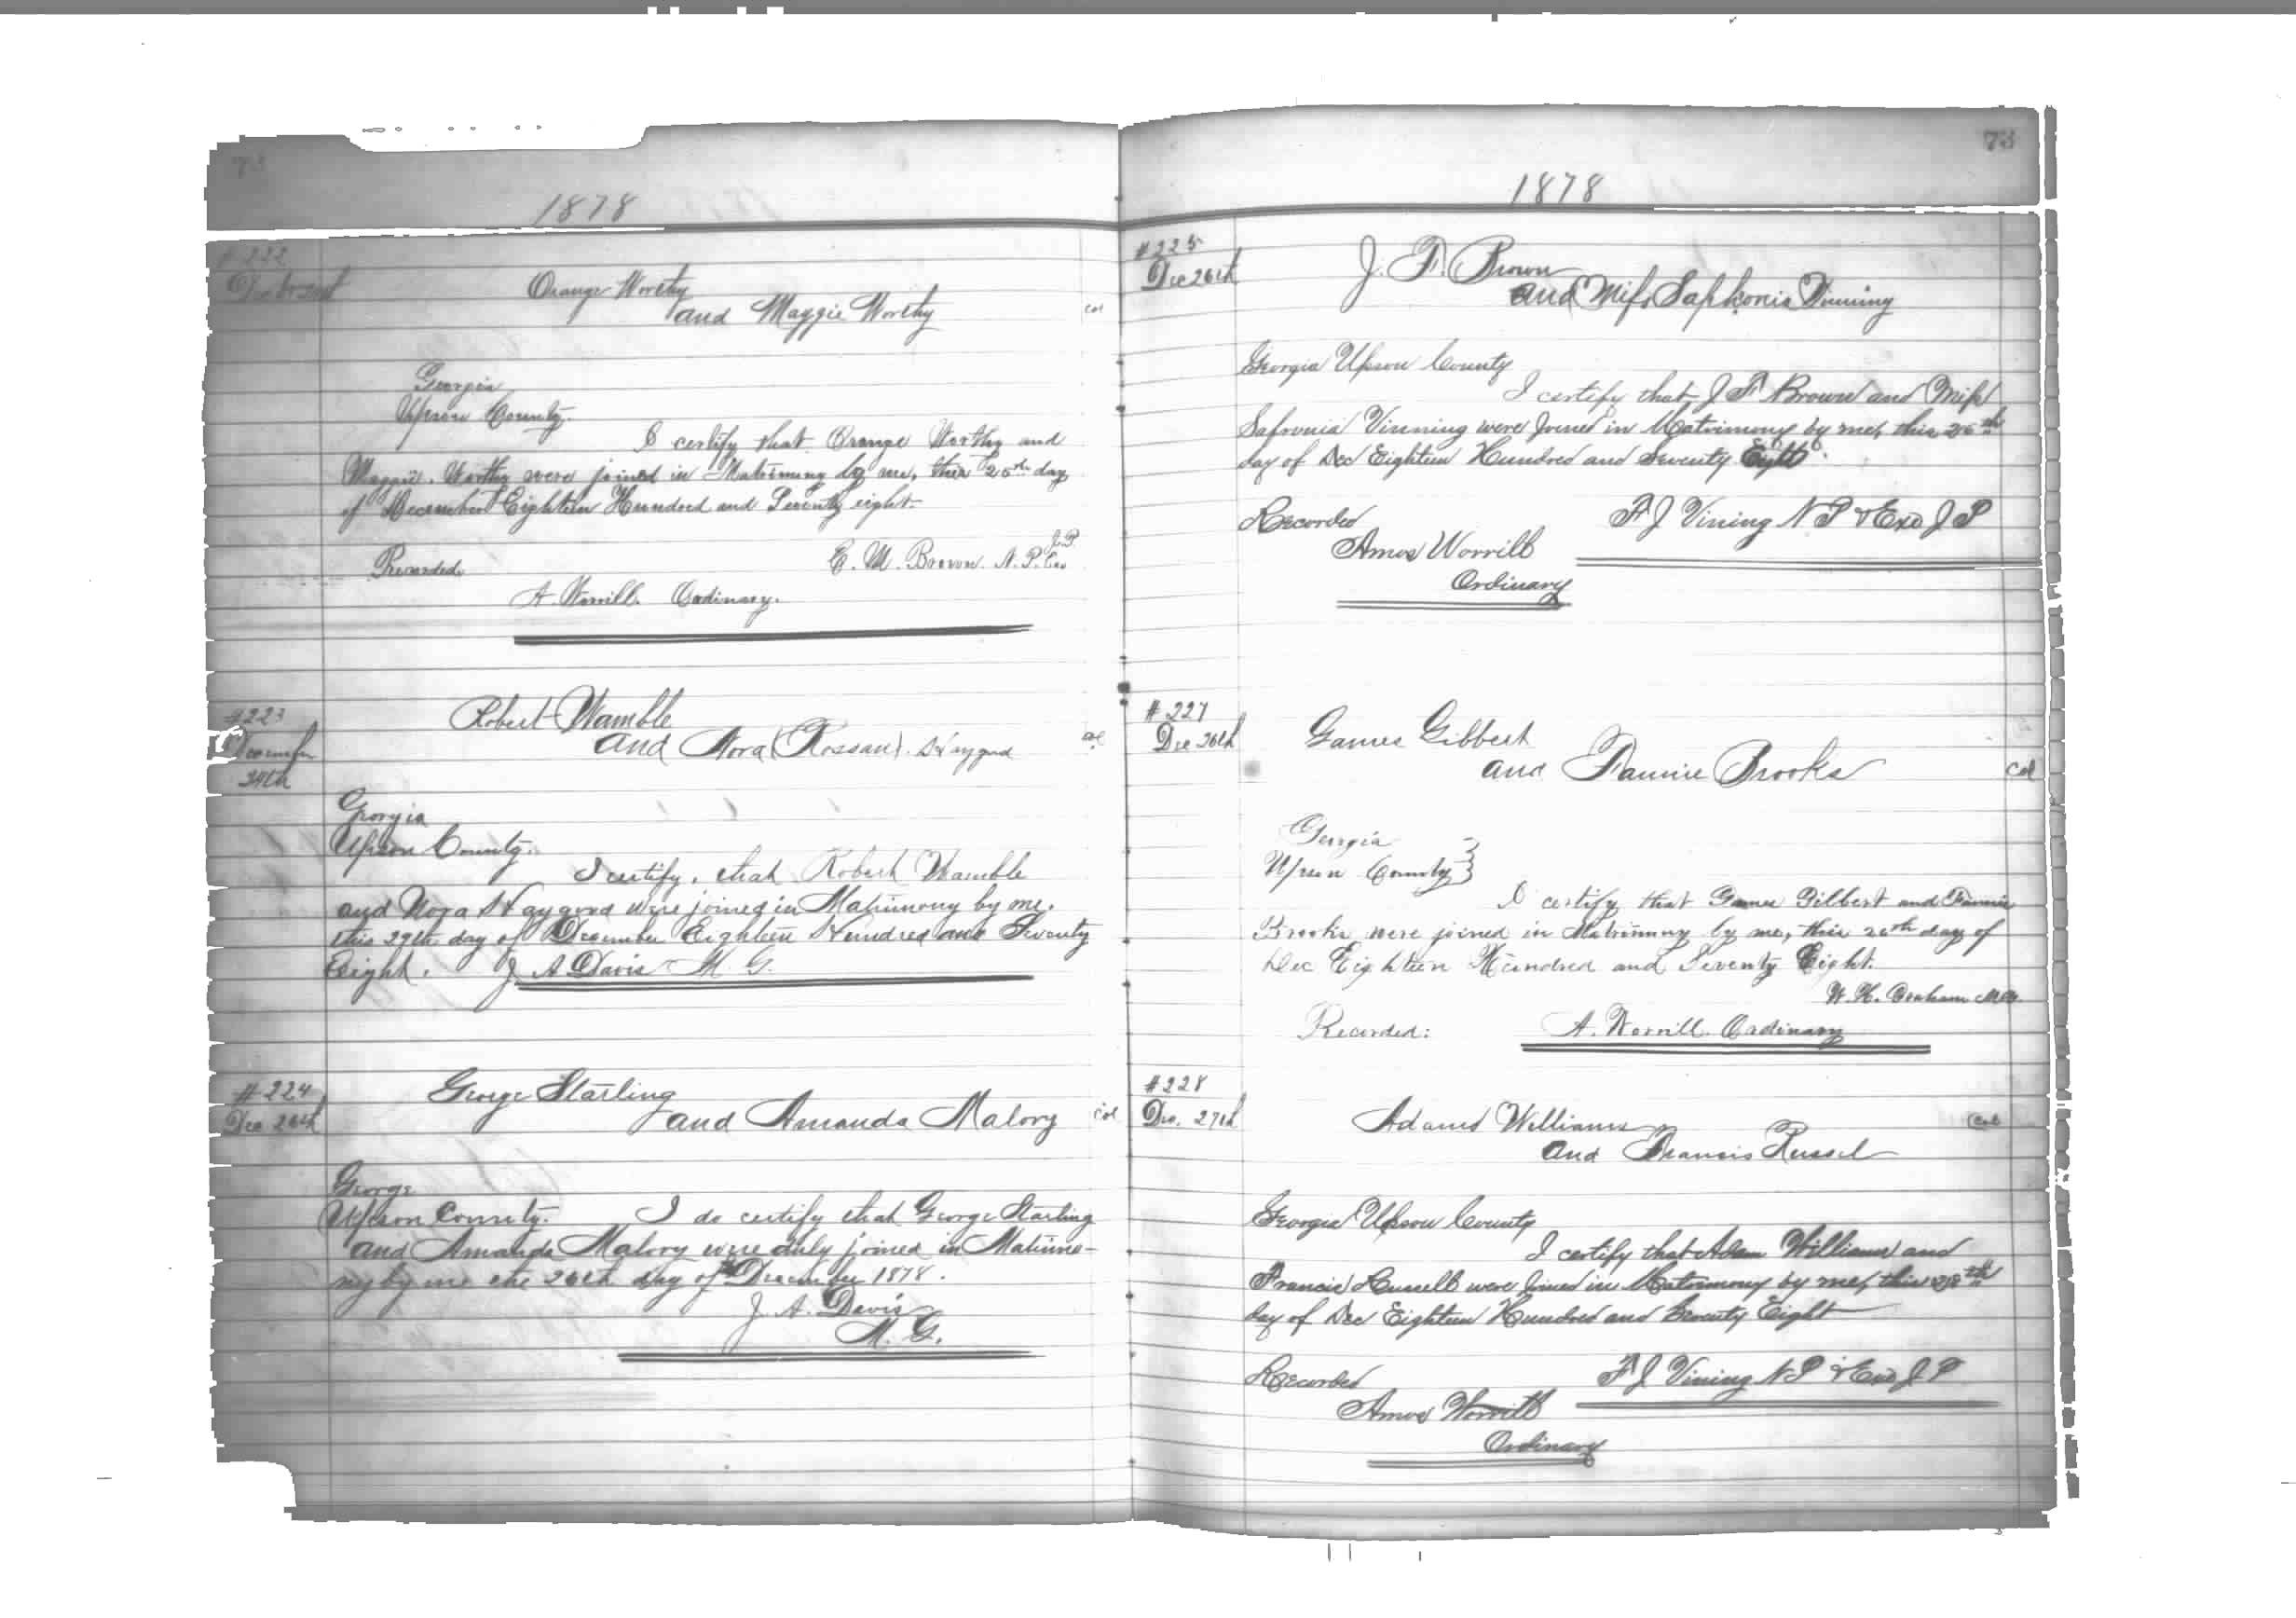 73
1878
#222
Orange Worthy
and Maggie Worthy
col
Georgia
Upson County.
I certify that Orange Worthy and
Maggie Worthy were joined in Matrimony by me, this 25th day
of December Eighteen Hundred and Seventy eight.
J.P.
E. M. Brown. N. P. Ex
Recorded.
A. Worrill. Ordinary.
#223
December
24th
Robert Wamble
and Nora (Rossau). Haygood
col
Georgia
Upson County.
I certify, that Robert Wamble
and Nora Haygood were joined in Matrimony by me.
this 29th day of December Eighteen Hundred and Seventy
Eight. J A Davis M. G.
#224
Dec 26th
George Starling
and Amanda Malory
col
George
Upson County. I do certify that George Starling
and Amanda Malory were duly joined in Matrimo-
ny by me the 26th day of December 1878.
J. A. Davis
M. G.
73
1878
#225
Dec 26th
J. F. Brown
and Miss Saphronia Vinning
Georgia Upson County
I certify that J F Brown and Miss
Safronia Vinning were Joined in Matrimony by me, this 26th
day of Dec Eighteen Hundred and Seventy Eight.
F J Vining N P & Exo J P
Recorded
Amos Worrill
Ordinary
#227
Dec 26th
Games Gibbert
and Fannie Brooks
Col
Georgia
Upson County
I certify that Games Gilbert and Fannie
Brooks were joined in Matrimony by me, this 26th day of
Dec Eighteen Hundred and Seventy Eight.
W. H. Graham M.G.
Recorded: A. Worrill. Ordinary
#228
Dec. 27th
Adams Williams
and Francis Russel
Col
Georgia Upson County
I certify that Adam Williams and
Francis Russell were Joined in Matrimony by me, this 28th
day of Dec Eighteen Hundred and Seventy Eight
F J Vining N P & Exo J P
Recorded
Amos Worrill
Ordinary